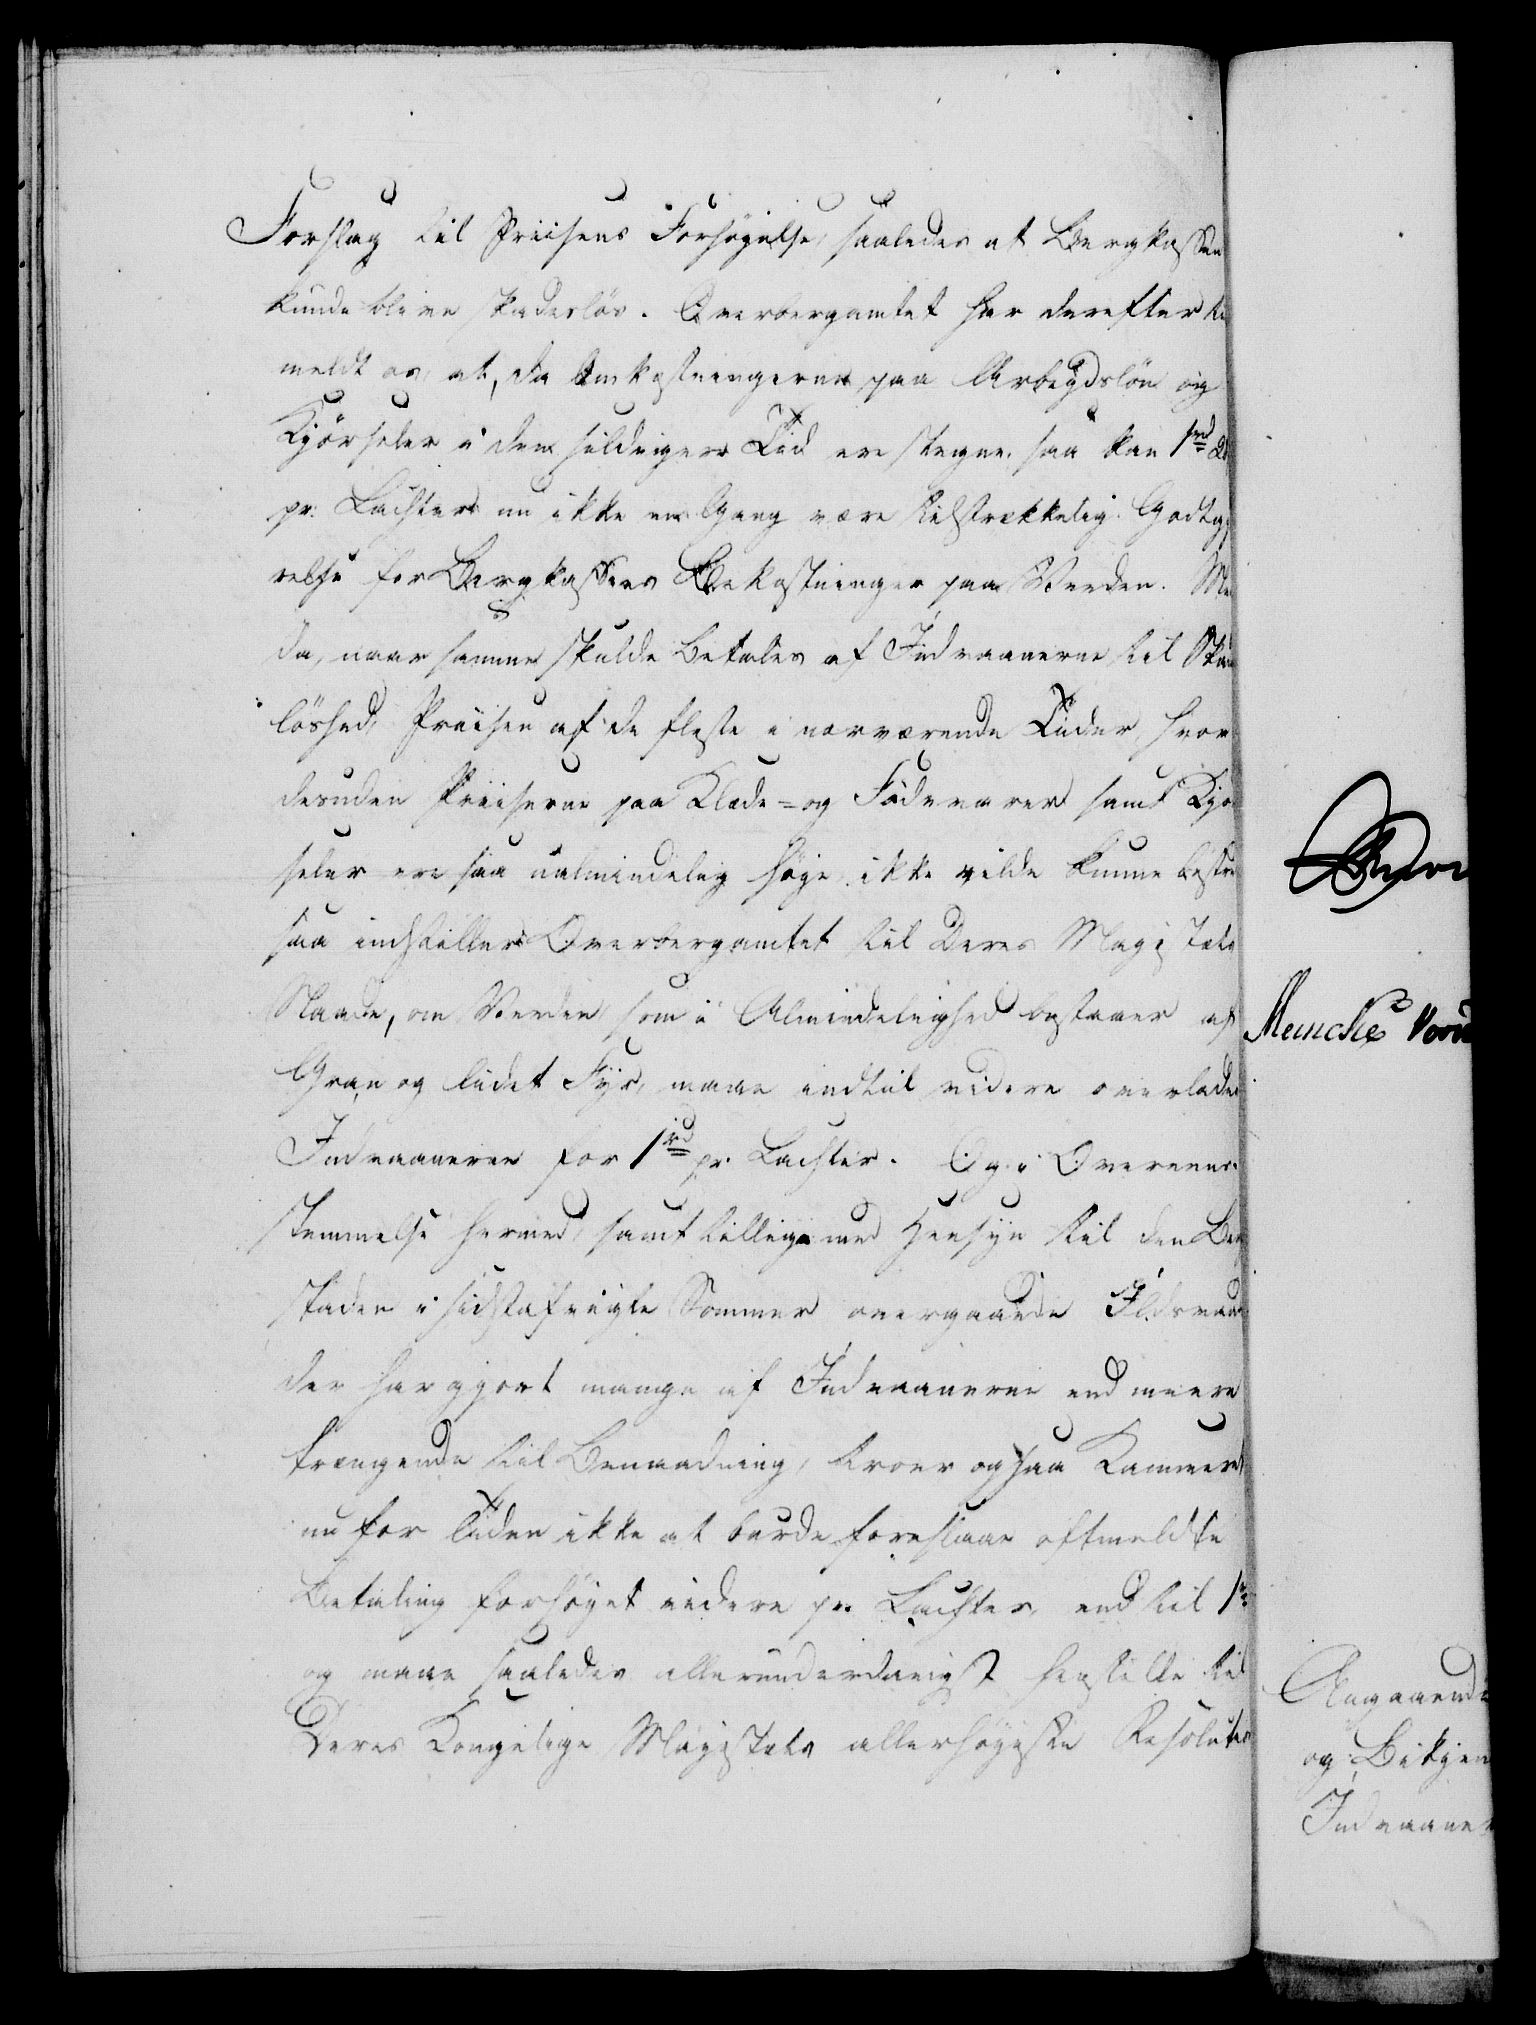 Forslag til Priisens Forhøjelse, saaledes at Bergkassen
kunde blive skadesløs. Overbergamtet har derefter
meldt os, at, da Omkostningerne paa Arbeydsløn og
Kjørseler i den sildigere Tid ere stegne, saa kan 1rd
pr. Lachter nu ikke en Gang være tilstrækkelig Godtgj
relse for Bergkassens Bekostninger paa Veeden. Me
da, naar samme skulde betales af Indvaanerne til Ska
løshed, Priisen af de fleste i nærværende Tider, hvor
desuden Priiserne paa Klæde- og Fødevarer samt Kjø
seler ere saa ualmindelig høje, ikke vilde kunne bestr
saa indstiller Overbergamtet til Deres Majestæts
Naade, om Veeden, som i Almindelighed bestaaer af
Gran og lidet Fyr, maae indtil videre overlades
Indvaanerne for 1rd pr. Lachter. Og i Overeens-
stemmelse hermed, samt tillige med Hensyn til den Berg
staden i sidstafvigte Sommer overgaaede Ildsvaa
der har gjort mange af Indvaanerne end meere
trængende til Benaadning, troer ogsaa Kammeret
nu for Tiden ikke at burde foreslaae oftmeldte
Betaling forhøjet videre pr. Lachter, end til 1rd
og maae saaledes allerunderdanigst henstille til
Deres Kongelige Majestæts allerhøjeste Resolution
Munchs
Angaaende
og Bekjen
Indvaaner